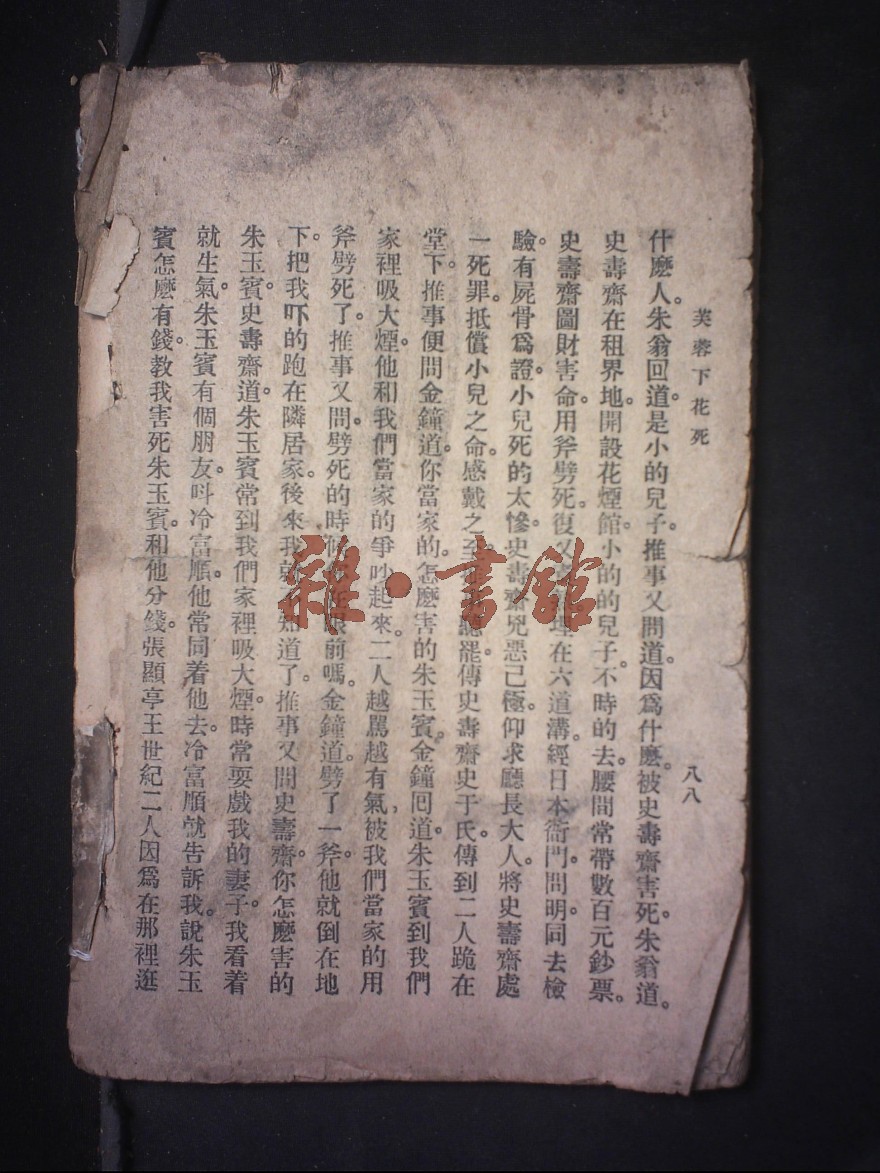 芙蓉下花死
八八
什麽人。朱翁回道。是小的兒子。推事又問道。因爲什麽。被史壽齋害死。朱翁道。
史壽齋在租界地。開設花煙館。小的的兒子。不時的去。腰間常帶數百元鈔票。
史壽齋圖財害命。用斧劈死。復又埋在六道溝。經日本衙門。問明。同去檢
驗。有屍骨爲證。小兒死的太慘。史壽齋兇惡已極。仰求廳長大人。將史壽齋處
一死罪。抵償小兒之命。感戴之至。聽罷。傳史壽齋史于氏。傳到二人跪在
堂下。推事便問金鐘道。你當家的。怎麽害的朱玉賓。金鐘囘道。朱玉賓到我們
家裡吸大煙。他和我們當家的爭吵起來。二人越罵越有氣。被我們當家的用
斧劈死了。推事又問。劈死的時候。你在眼前嗎。金鐘道。劈了一斧。他就倒在地
下。把我吓的跑在隣居家。後來我就不知道了。推事又問史壽齋。你怎麽害的
朱玉賓。史壽齋道。朱玉賓常到我們家裡吸大煙。時常耍戲我的妻子。我看着
就生氣。朱玉賓有個朋友。呌冷富順。他常同着他去。冷富順就告訴我。說朱玉
賓怎麽有錢。教我害死朱玉賓。和他分錢。張顯亭王世紀二人因爲在那裡逛
雜·書舘